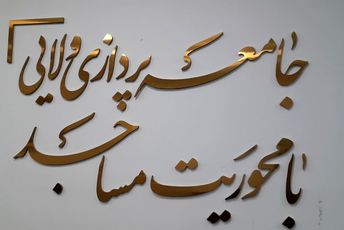 جامعه پردازی ولایی
با محوریت مساجد